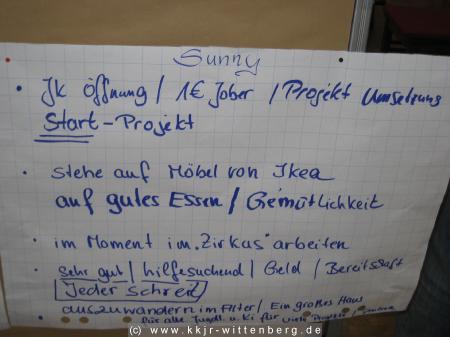 Sunny
• JK Öffnung / 1€ Jober / Projekt Umsetzung
Start-Projekt
• stehe auf Möbel von Ikea
auf gutes Essen / Gemütlichkeit
• im Moment im "Zirkus" arbeiten
• sehr gut / hilfesuchend / Geld / Bereitschaft
Jeder schreit
auszuwandern im Alter / Ein großes Haus
für alle Jugdl. u. Ki für viele
© www.kkjr-wittenberg.de